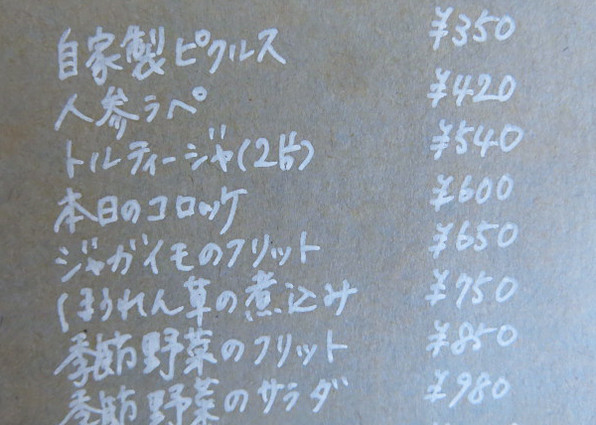 自家製ピクルス ¥350
人参ラペ ¥420
トルティージャ(2切) ¥540
本日のコロッケ ¥600
ジャガイモのフリット ¥650
ほうれん草の煮込み ¥750
季節野菜のフリット ¥850
季節野菜のサラダ ¥980